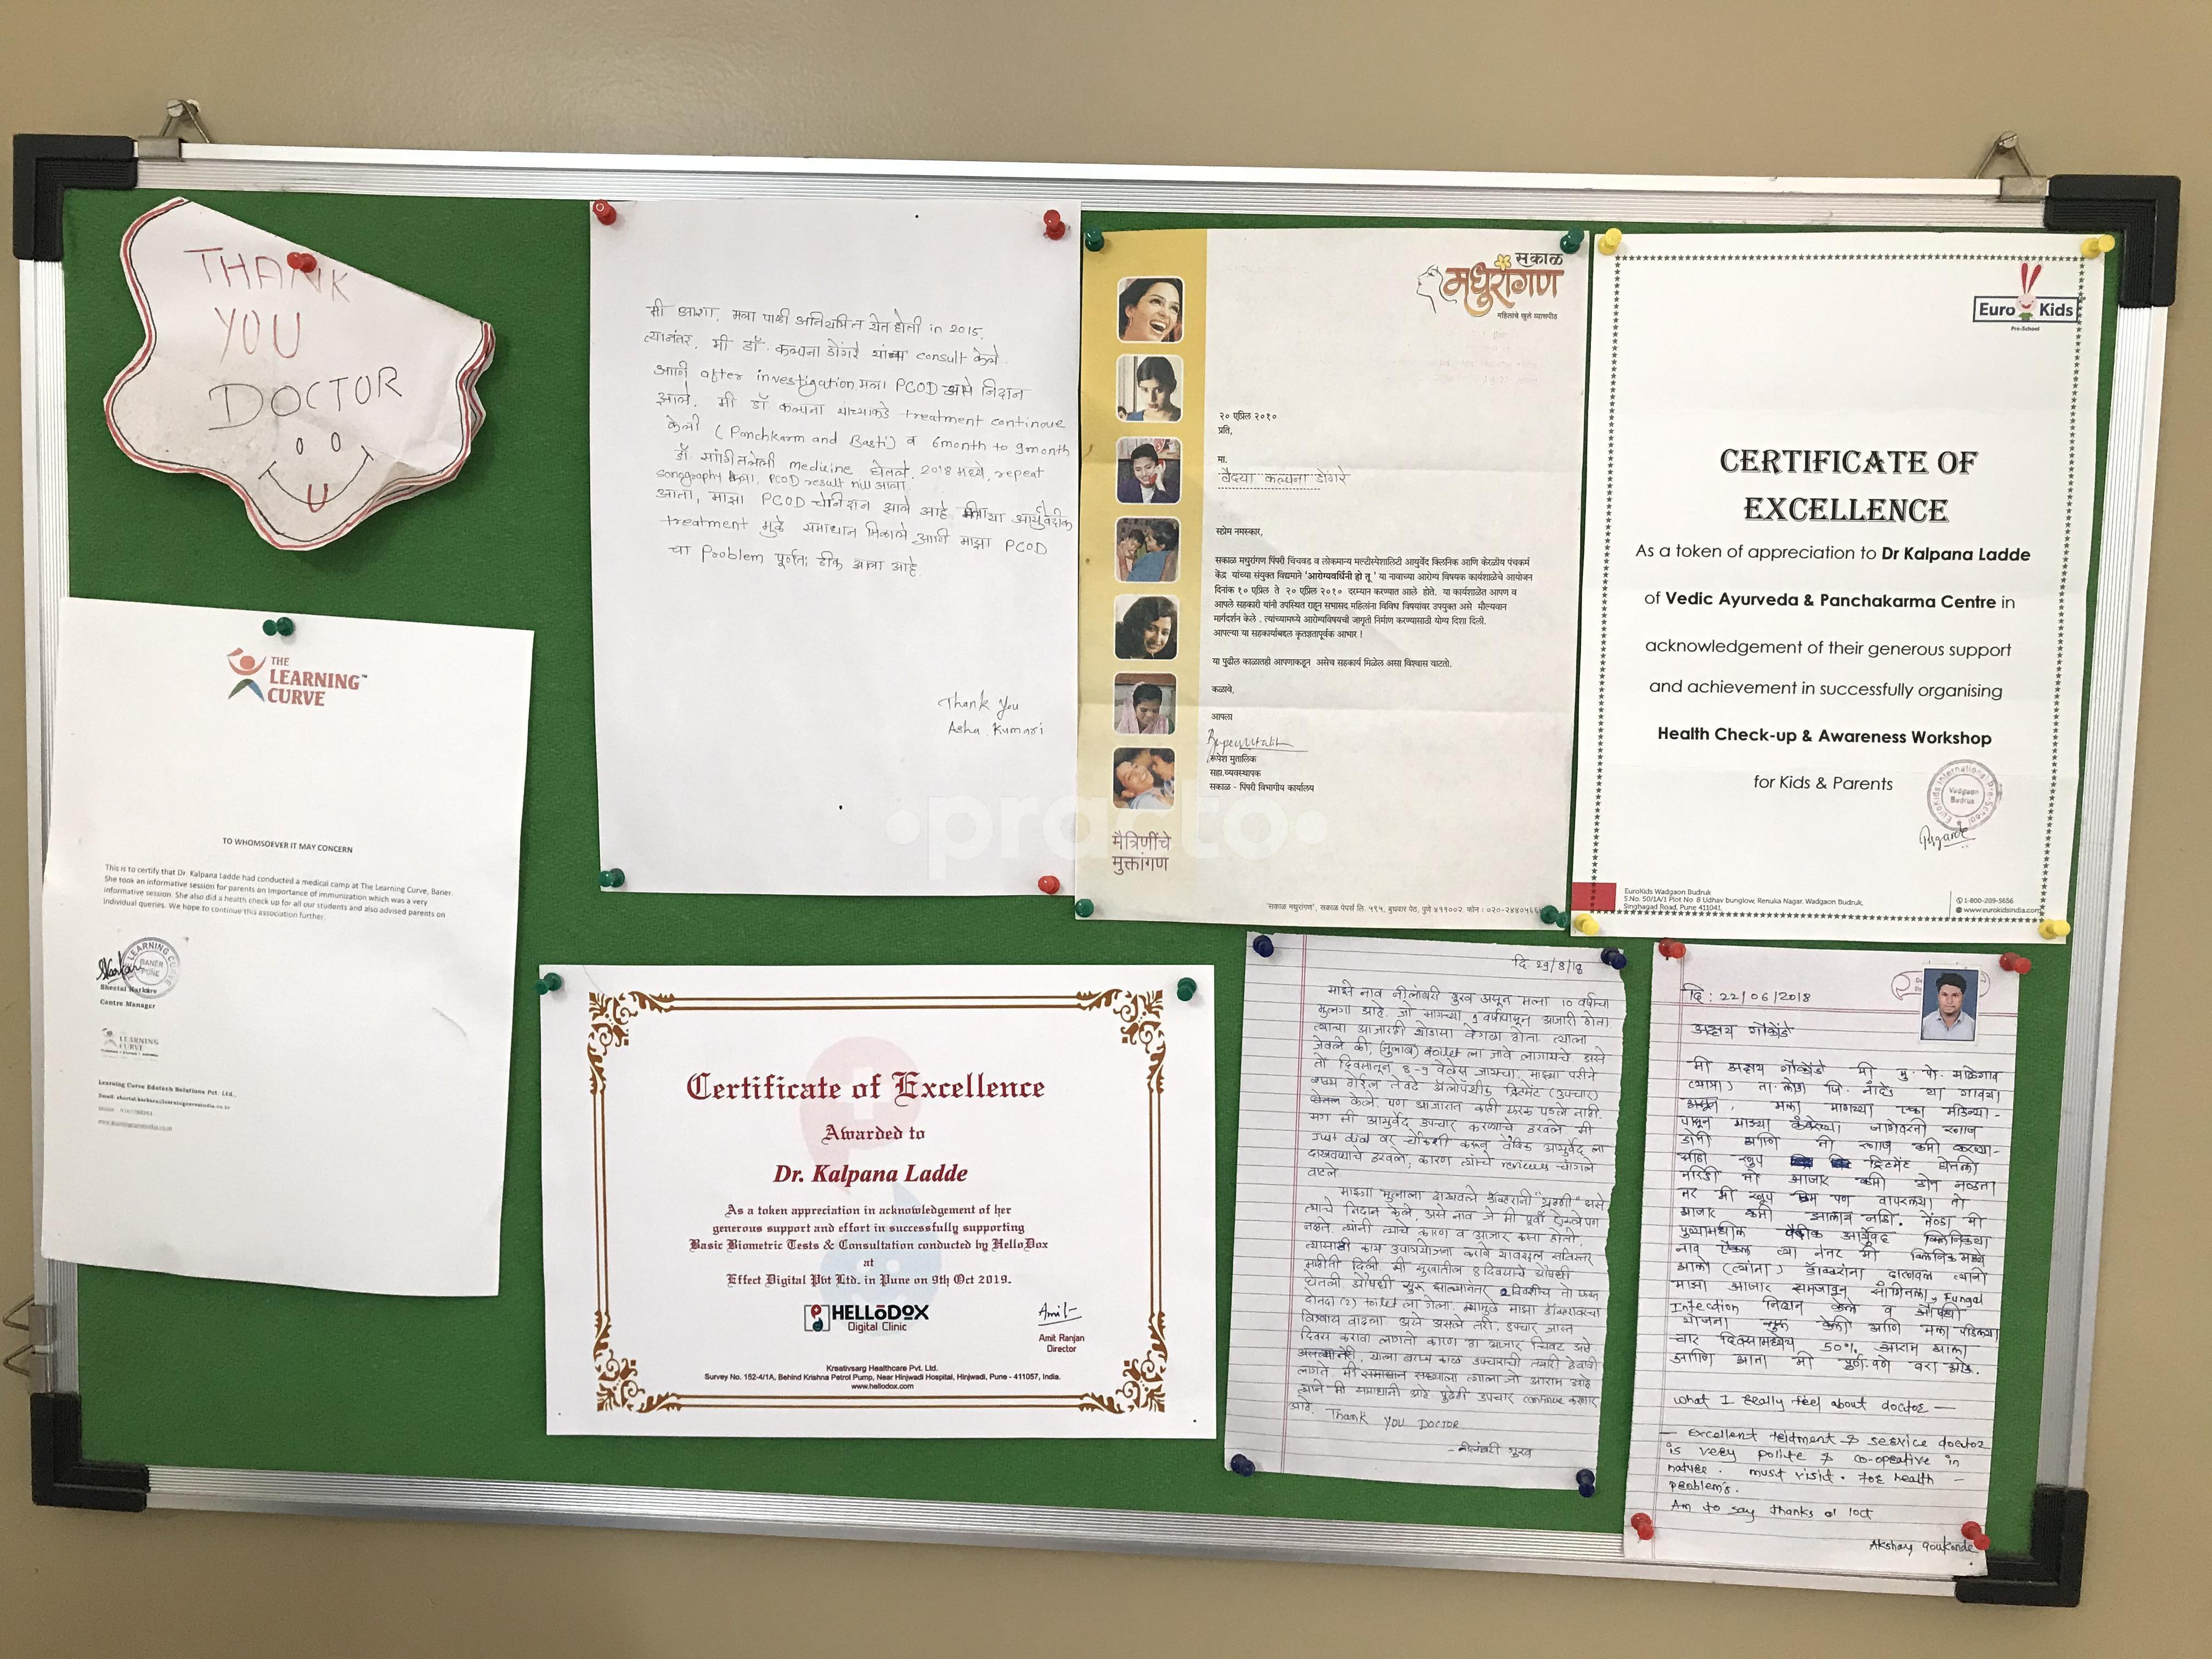 THANK
YOU
DOCTOR
मी आशा, मला पाळी अनियमित येत होती in 2015.
त्यानंतर, मी डॉ. कल्पना डोंगरे यांना consult केले.
आणि after investigation, मला PCOD असे निदान
झाले. मी डॉ कल्पना यांच्याकडे treatment continoue
केली (Panchkarm and Basti) व 6month to 9month
डॉ. सांगितलेली medicine घेतले. 2018 मध्ये, repeat
sonography केला, PCOD result nill आला.
आता, माझा PCOD चे निदान झाले आहे आयुर्वेदीक
treatment मुळे समाधान मिळाले आणि माझा PCOD
चा problem पूर्णत: ठीक झाला आहे.
Thank You
Asha Kumari
सकाळ
मधुरांगण
महिलांचे खुले व्यासपीठ
२० एप्रिल २०१०
प्रति,
मा.
वैदया कल्पना डोंगरे
सप्रेम नमस्कार,
सकाळ मधुरांगण पिंपरी चिंचवड व लोकमान्य मल्टीस्पेशालिटी आयुर्वेद क्लिनिक आणि केरळीय पंचकर्म
केंद्र यांच्या संयुक्त विद्यमाने 'आरोग्यवर्धिनी हो तू ' या नावाच्या आरोग्य विषयक कार्यशाळेचे आयोजन
दिनांक १० एप्रिल ते २० एप्रिल २०१० दरम्यान करण्यात आले होते. या कार्यशाळेत आपण व
आपले सहकारी यांनी उपस्थित राहून सभासद महिलांना विविध विषयांवर उपयुक्त असे मौल्यवान
मार्गदर्शन केले . त्यांच्यामध्ये आरोग्यविषयची जागृती निर्माण करण्यासाठी योग्य दिशा दिली.
आपल्या या सहकार्याबद्दल कृतज्ञतापूर्वक आभार !
या पुढील काळातही आपणाकडून असेच सहकार्य मिळेल असा विश्वास वाटतो.
कळावे,
आपला
रूपेश मुतालिक
सहा.व्यवस्थापक
सकाळ - पिंपरी विभागीय कार्यालय
मैत्रिणींचे
मुक्तांगण
'सकाळ मधुरांगण', सकाळ पेपर्स लि. ५९५, बुधवार पेठ, पुणे ४११००२. फोन : ०२०-
Euro Kids
Pre-School
CERTIFICATE OF
EXCELLENCE
As a token of appreciation to Dr Kalpana Ladde
of Vedic Ayurveda & Panchakarma Centre in
acknowledgement of their generous support
and achievement in successfully organising
Health Check-up & Awareness Workshop
for Kids & Parents
Vadgaon
Budruk
EuroKids Wadgaon Budruk
S.No. 50/1A/1 Plot No 8 Udhav bunglow, Renuka Nagar, Wadgaon Budruk,
Singhagad Road, Pune 411041.
1-800-209-5656
www.eurokidsindia.com
practo
THE
LEARNING
CURVE
TO WHOMSOEVER IT MAY CONCERN
This is to certify that Dr. Kalpana Ladde had conducted a medical camp at The Learning Curve, Baner.
She took an informative session for parents on Importance of immunization which was a very
informative session. She also did a health check up for all our students and also advised parents on
individual queries. We hope to continue this association further.
LEARNING CURVE
BANER
PUNE
Sheetal Karkare
Centre Manager
LEARNING
CURVE
Learning Curve Edutech Solutions Pvt. Ltd.,
Certificate of Excellence
Awarded to
Dr. Kalpana Ladde
As a token appreciation in acknowledgement of her
generous support and effort in successfully supporting
Basic Biometric Tests & Consultation conducted by HelloDox
at
Effect Digital Pvt Ltd. in Pune on 9th Oct 2019.
HELLODOX
Digital Clinic
Amit
Amit Ranjan
Director
Kreativsarg Healthcare Pvt. Ltd.
Survey No. 152-4/1A, Behind Krishna Petrol Pump, Near Hinjwadi Hospital, Hinjwadi, Pune - 411057, India.
www.hellodox.com
दि 29/8/18
माझे नाव नीलांबरी गुरव असून मला 10 वर्षाचा
मुलगा आहे. जो मागच्या 1 वर्षापासून आजारी होता
त्याचा आजारही थोडासा वेगळा होता. त्याला
जेवले की, (जुलाब) toilet ला जावे लागायचे असे
तो दिवसातून 8-9 वेळेस जायचा. माझ्या परीने
शक्य होईल तेवढे अ‍ॅलोपॅथीक ट्रिटमेंट (उपचार)
केले. पण आजारात काही फरक पडले नाही.
मग मी आयुर्वेद उपचार करण्याचे ठरवले. मी
Just dial वर चौकशी करून वैदिक आयुर्वेद ला
दाखवायचे ठरवले, कारण त्यांचे reviews चांगले
वाटले.
माझ्या मुलाला दाखवले डॉक्टरांनी "ग्रहणी" असे
त्याचे निदान केले, असे नाव जे मी पूर्वी ऐकले पण
नव्हते त्यांनी त्याचे कारण व आजार कसा होतो,
त्यासाठी काय उपाययोजना करावे याबद्दल सविस्तर
माहीती दिली. मी सुरुवातीला 8 दिवसाचे औषधी
घेतली औषधी सुरू झाल्यानंतर 2 दिवसीच तो फक्त
दोनदा (2) toilet ला गेला. त्यामुळे माझा डॉक्टरांवरचा
विश्वास वाढला असे असले तरी, उपचार जास्त
दिवस करावा लागतो कारण हा आजार चिवट असे
लागते. मी सध्याला त्याला जो आराम आहे
त्याने मी समाधानी आहे. पुढेही उपचार continue करणार
आहे. Thank YOU DOCTOR
- नीलंबरी गुरव
दि : 22/06/2018
अक्षय गौकोंडे
मी अक्षय गौकोंडे मी मु. पो. माळेगाव
(यात्रा) ता. लोहा जि. नांदेड या गावचा
असून, मला मागच्या एका महिन्या-
खूप ट्रिटमेंट घेतली
आजार कमी झालाच नाही. तेव्हा मी
पुण्यामधील वैदीक आर्युवेद क्लिनिकचा
नाव ऐकल त्या नंतर मी क्लिनिक मध्ये
आलो (त्यांना) डॉक्टरांना दाखवल त्यांनी
माझा आजार समजावून सांगितला, Fungal
Infection निदान केले व औषधी
योजना सुरू केली आणि मला पहिल्या
चार दिवसामध्येच 50% आराम झाला
आणि आता मी पूर्ण पणे बरा आहे.
what I really feel about doctor —
— Excellent teldment & service doctor
is very polite & co-opeative in
nature. must visit. for health -
problem's.
Am to say thanks a loct
Akshay Goukonde